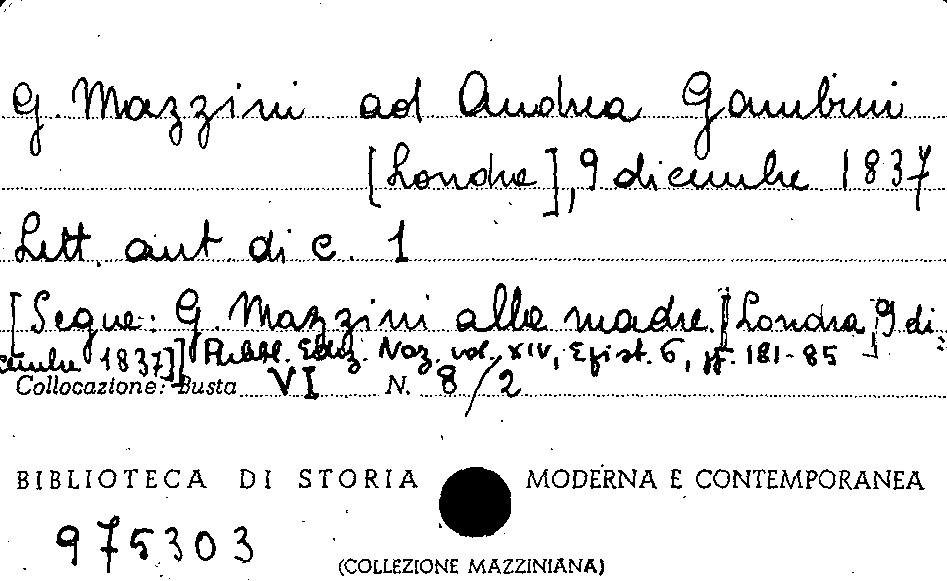 G. Mazzini ad Andrea Gambini
[Londra], 9 dicembre 1837
Lett. aut. di c. 1
[Segue: G. Mazzini alla madre. [Londra, 9 di-
cembre 1837]] Pubbl. Ediz. Naz. vol. XIV, Epist. 6, pp. 181-85
Collocazione: Busta VI N. 8/2
BIBLIOTECA DI STORIA MODERNA E CONTEMPORANEA
975303
(COLLEZIONE MAZZINIANA)